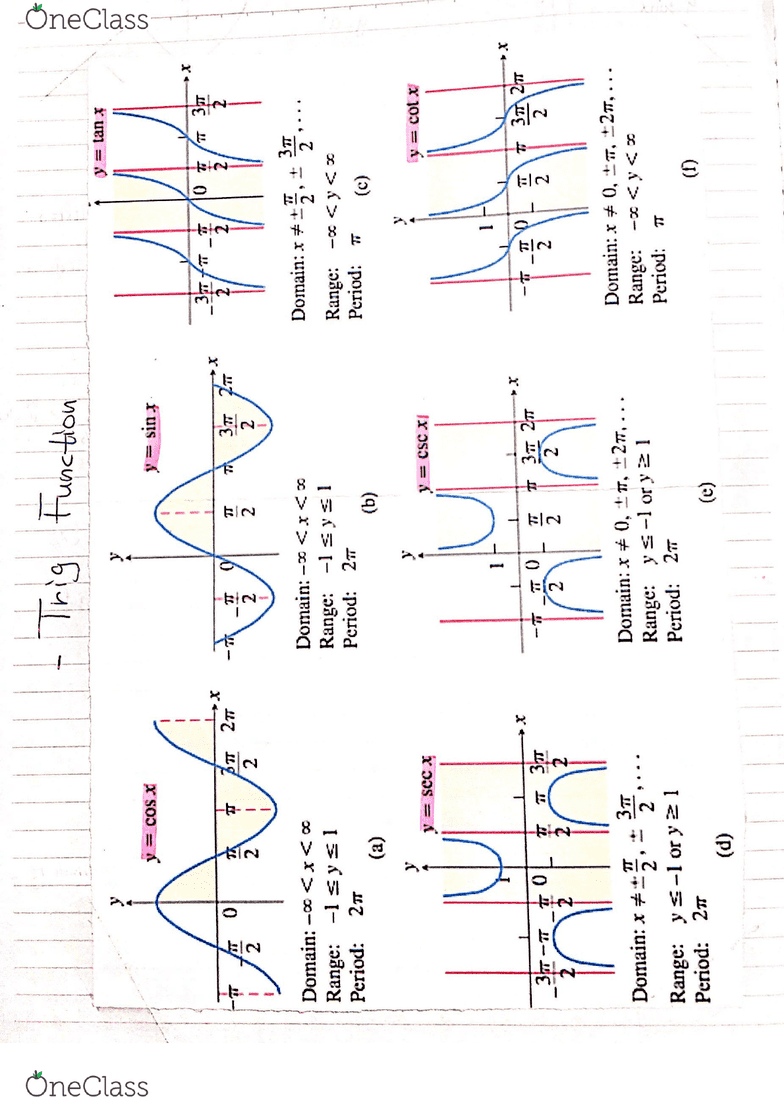 OneClass
- Trig Function
y = cos x
y
x
-π
-π/2
0
π/2
π
3π/2
2π
Domain: -∞ < x < ∞
Range: -1 ≤ y ≤ 1
Period: 2π
(a)
y = sin x
y
x
-π
-π/2
0
π/2
π
3π/2
2π
Domain: -∞ < x < ∞
Range: -1 ≤ y ≤ 1
Period: 2π
(b)
y = tan x
x
-3π/2
-π
-π/2
0
π/2
π
3π/2
Domain: x ≠ ±π/2, ±3π/2, . . .
Range: -∞ < y < ∞
Period: π
(c)
y = sec x
y
x
1
-3π/2
-π
-π/2
0
π/2
π
3π/2
Domain: x ≠ ±π/2, ±3π/2, . . .
Range: y ≤ -1 or y ≥ 1
Period: 2π
(d)
y = csc x
y
x
1
-π
-π/2
0
π/2
π
3π/2
2π
Domain: x ≠ 0, ±π, ±2π, . . .
Range: y ≤ -1 or y ≥ 1
Period: 2π
(e)
y = cot x
y
x
1
-π
-π/2
0
π/2
π
3π/2
2π
Domain: x ≠ 0, ±π, ±2π, . . .
Range: -∞ < y < ∞
Period: π
(f)
OneClass